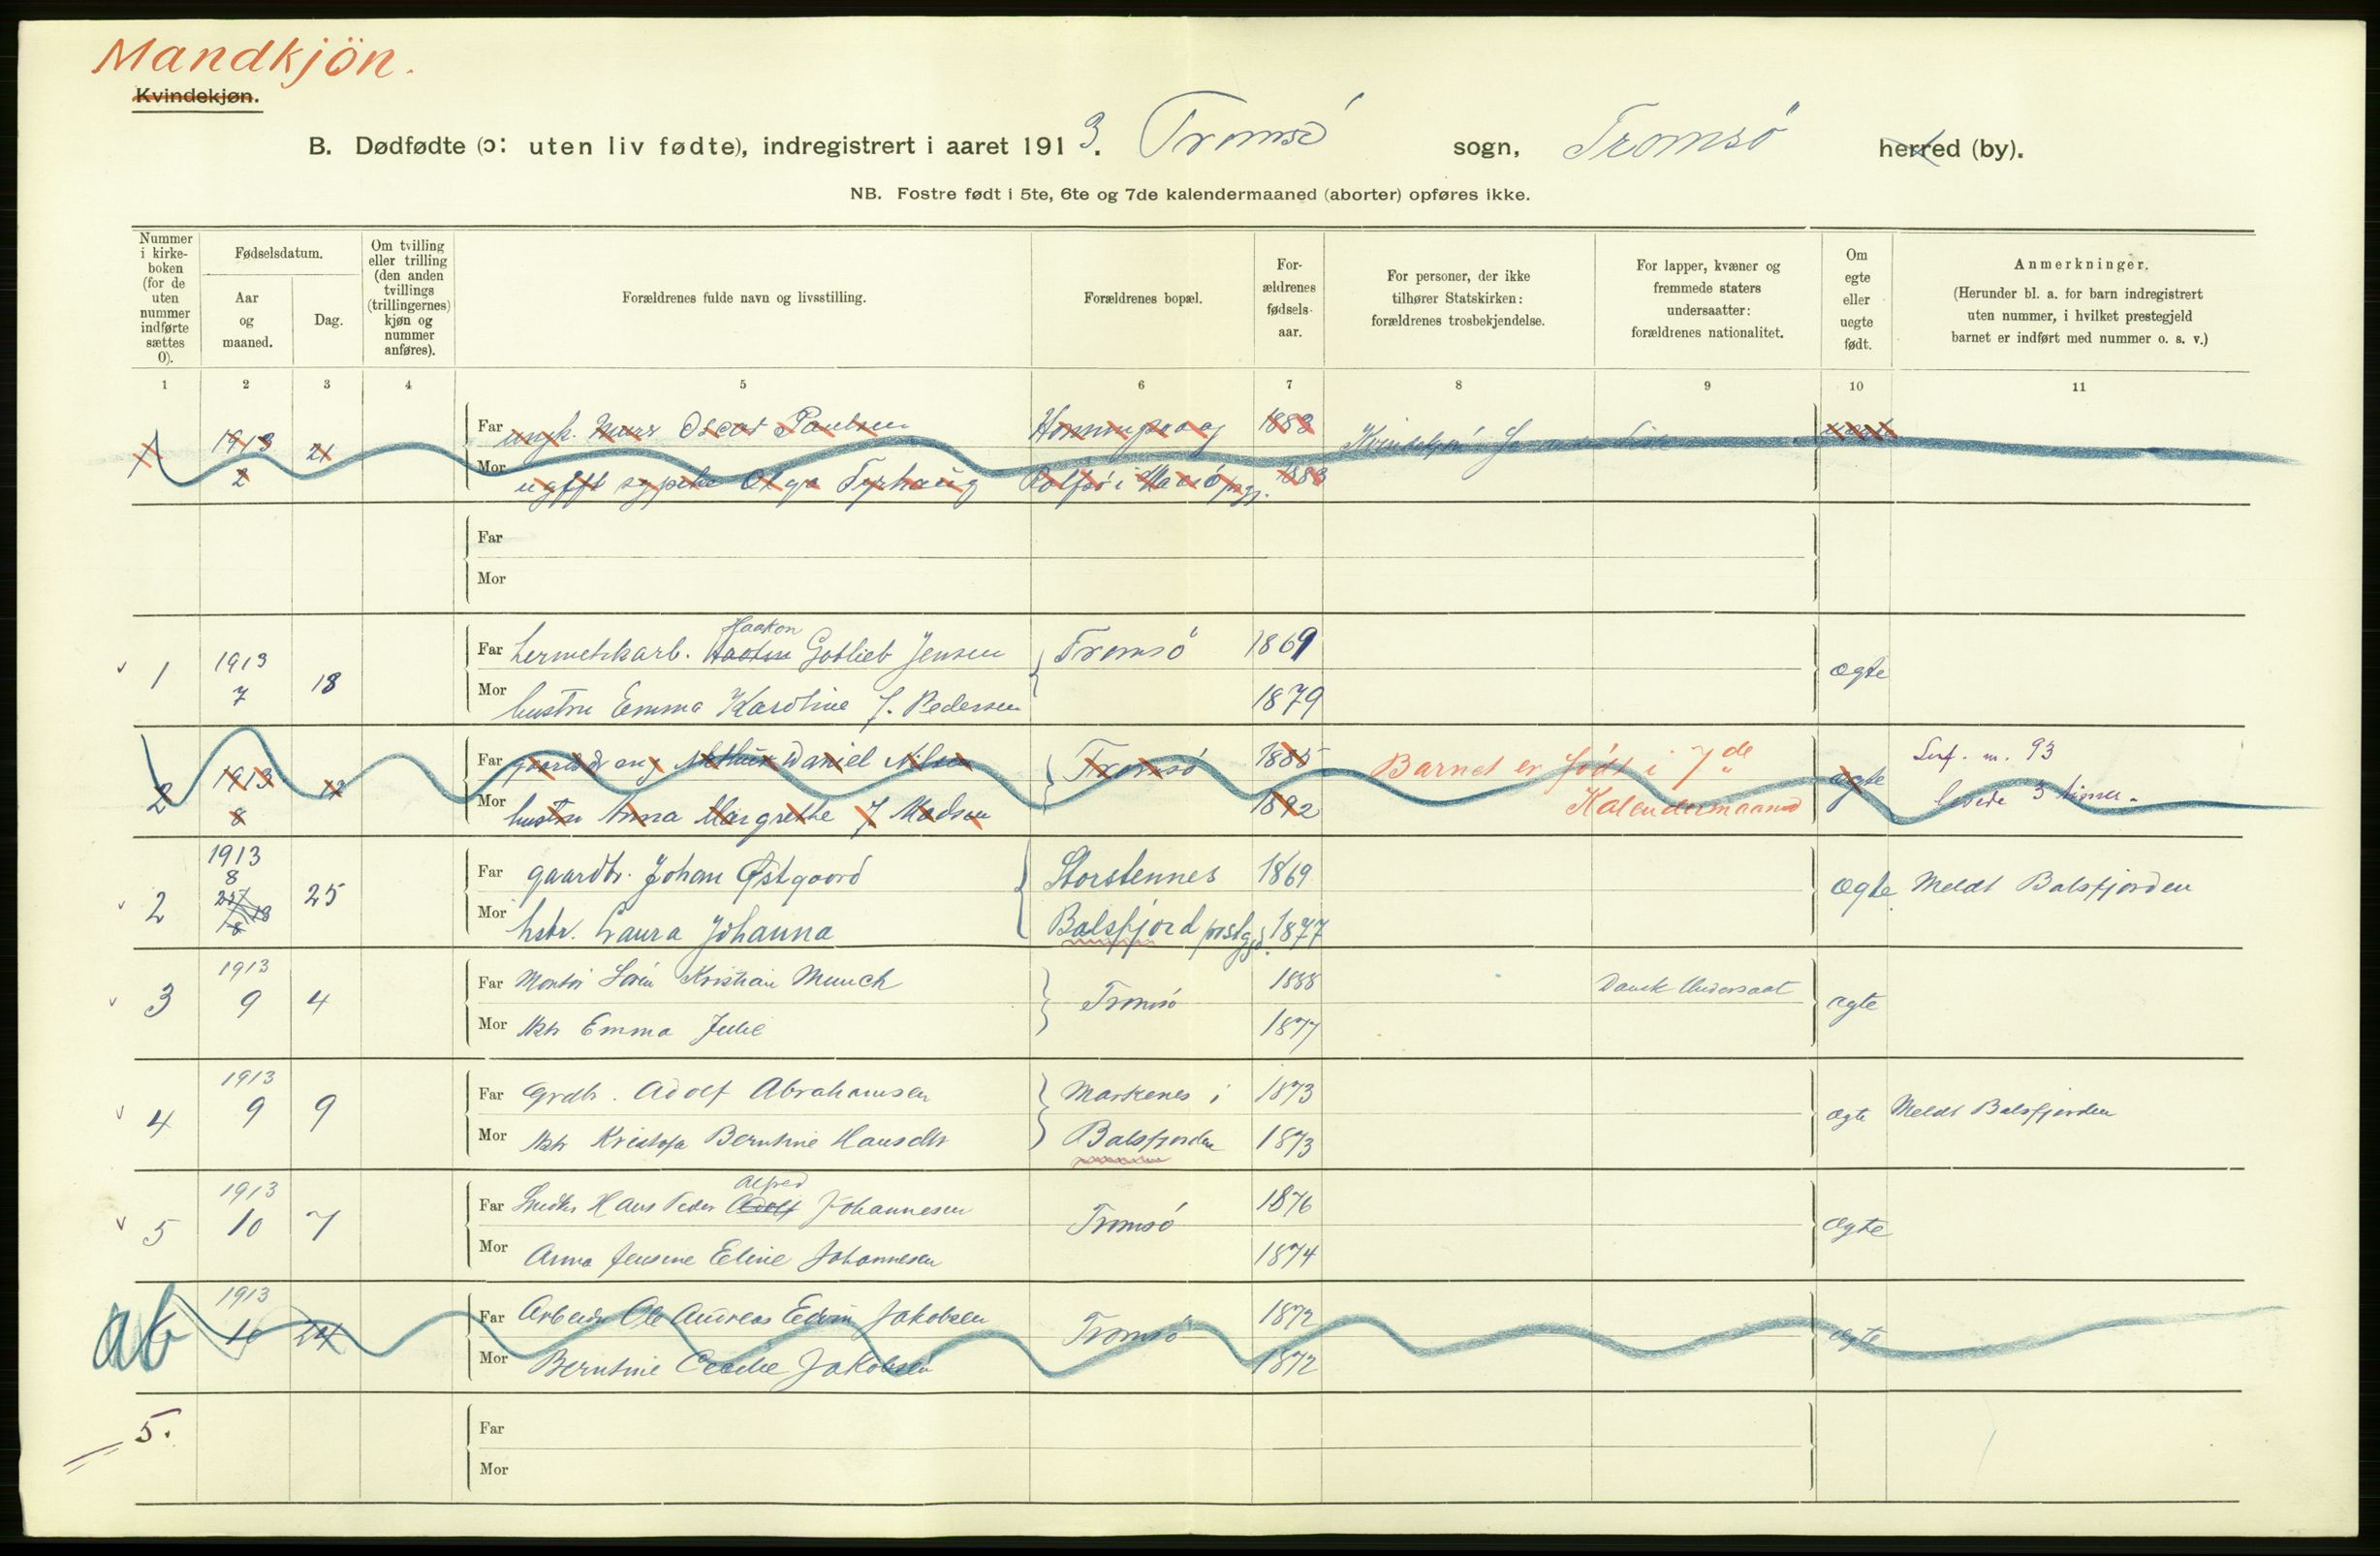 Mandkjön.
Kvindekjøn.
B. Dødfødte (ɔ: uten liv fødte), indregistrert i aaret 1913. Tromsö sogn, Tromsö herred (by).
NB. Fostre født i 5te, 6te og 7de kalendermaaned (aborter) opføres ikke.
Nummer i kirke-boken (for de uten nummer indførte sættes 0).
Fødselsdatum.
Aar og maaned.
Dag.
Om tvilling eller trilling (den anden tvillings (trillingernes) kjøn og nummer anføres).
Forældrenes fulde navn og livsstilling.
Forældrenes bopæl.
For-ældrenes fødsels-aar.
For personer, der ikke tilhører Statskirken: forældrenes trosbekjendelse.
For lapper, kvæner og fremmede staters undersaatter: forældrenes nationalitet.
Om egte eller uegte født.
Anmerkninger.
(Herunder bl. a. for barn indregistrert uten nummer, i hvilket prestegjeld barnet er indført med nummer o. s. v.)
1 2 3 4 5 6 7 8 9 10 11
1 1913 2 21 Far ungk. Murer Oscar Paulsen Honningsvaag 1883
Mor ugift sypike Olga Tyrhaug Rolfsö i Maasö pgj. 1883
Far
Mor
1 1913 7 18 Far hermetikarb. Haakon Gotlieb Jensen Tromsö 1869 ægte
Mor hustru Emma Karoline f. Pedersen 1879
2 1913 8 12 Far Arthur Daniel Nilsen Tromsö 1885 Barnet er födt i 7de Kalendermaaned ægte m. 93
Mor hustru Anna Margrethe f Madsen 1892 levede 3 timer.
2 1913 8 25 Far gaardbr. Johan Østgaard Storstennes 1869 Ægte Meldt Balsfjorden
Mor hstr. Laura Johanna Balsfjord prstgjd. 1877
3 1913 9 4 Far Montör Sören Kristian Munch Tromsö 1888 Dansk Undersaat ægte
Mor Hstr Emma Julie 1877
4 1913 9 9 Far Grdbr. Adolf Abrahamsen Markenes i 1873 ægte Meldt Balsfjorden
Mor Hstr Kristofa Berntine Hansdtr Balsfjorden 1873
5 1913 10 7 Far Snedker Hans Peder Alfred Johannesen Tromsö 1876 Ægte
Mor Anna Jensine Eline Johannesen 1874
6 1913 10 24 Far Arbeider Ole Andreas Edvin Jakobsen Tromsö 1872 ægte
Mor Berntine Cecilie Jakobsen 1872
5. Far
Mor